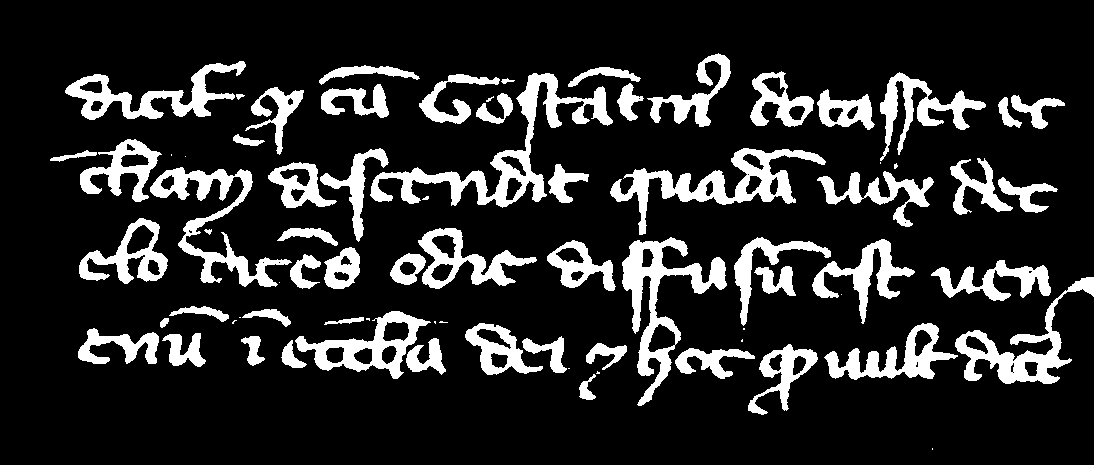 dicit᷑ ꝙ cū Gostātinꝰ dotasset ec
cħiam descendit quadā uox de c
elo dicēs odie diffusū est uen
enū ī eccƚia dei ⁊ hoc ꝙ uult dicē